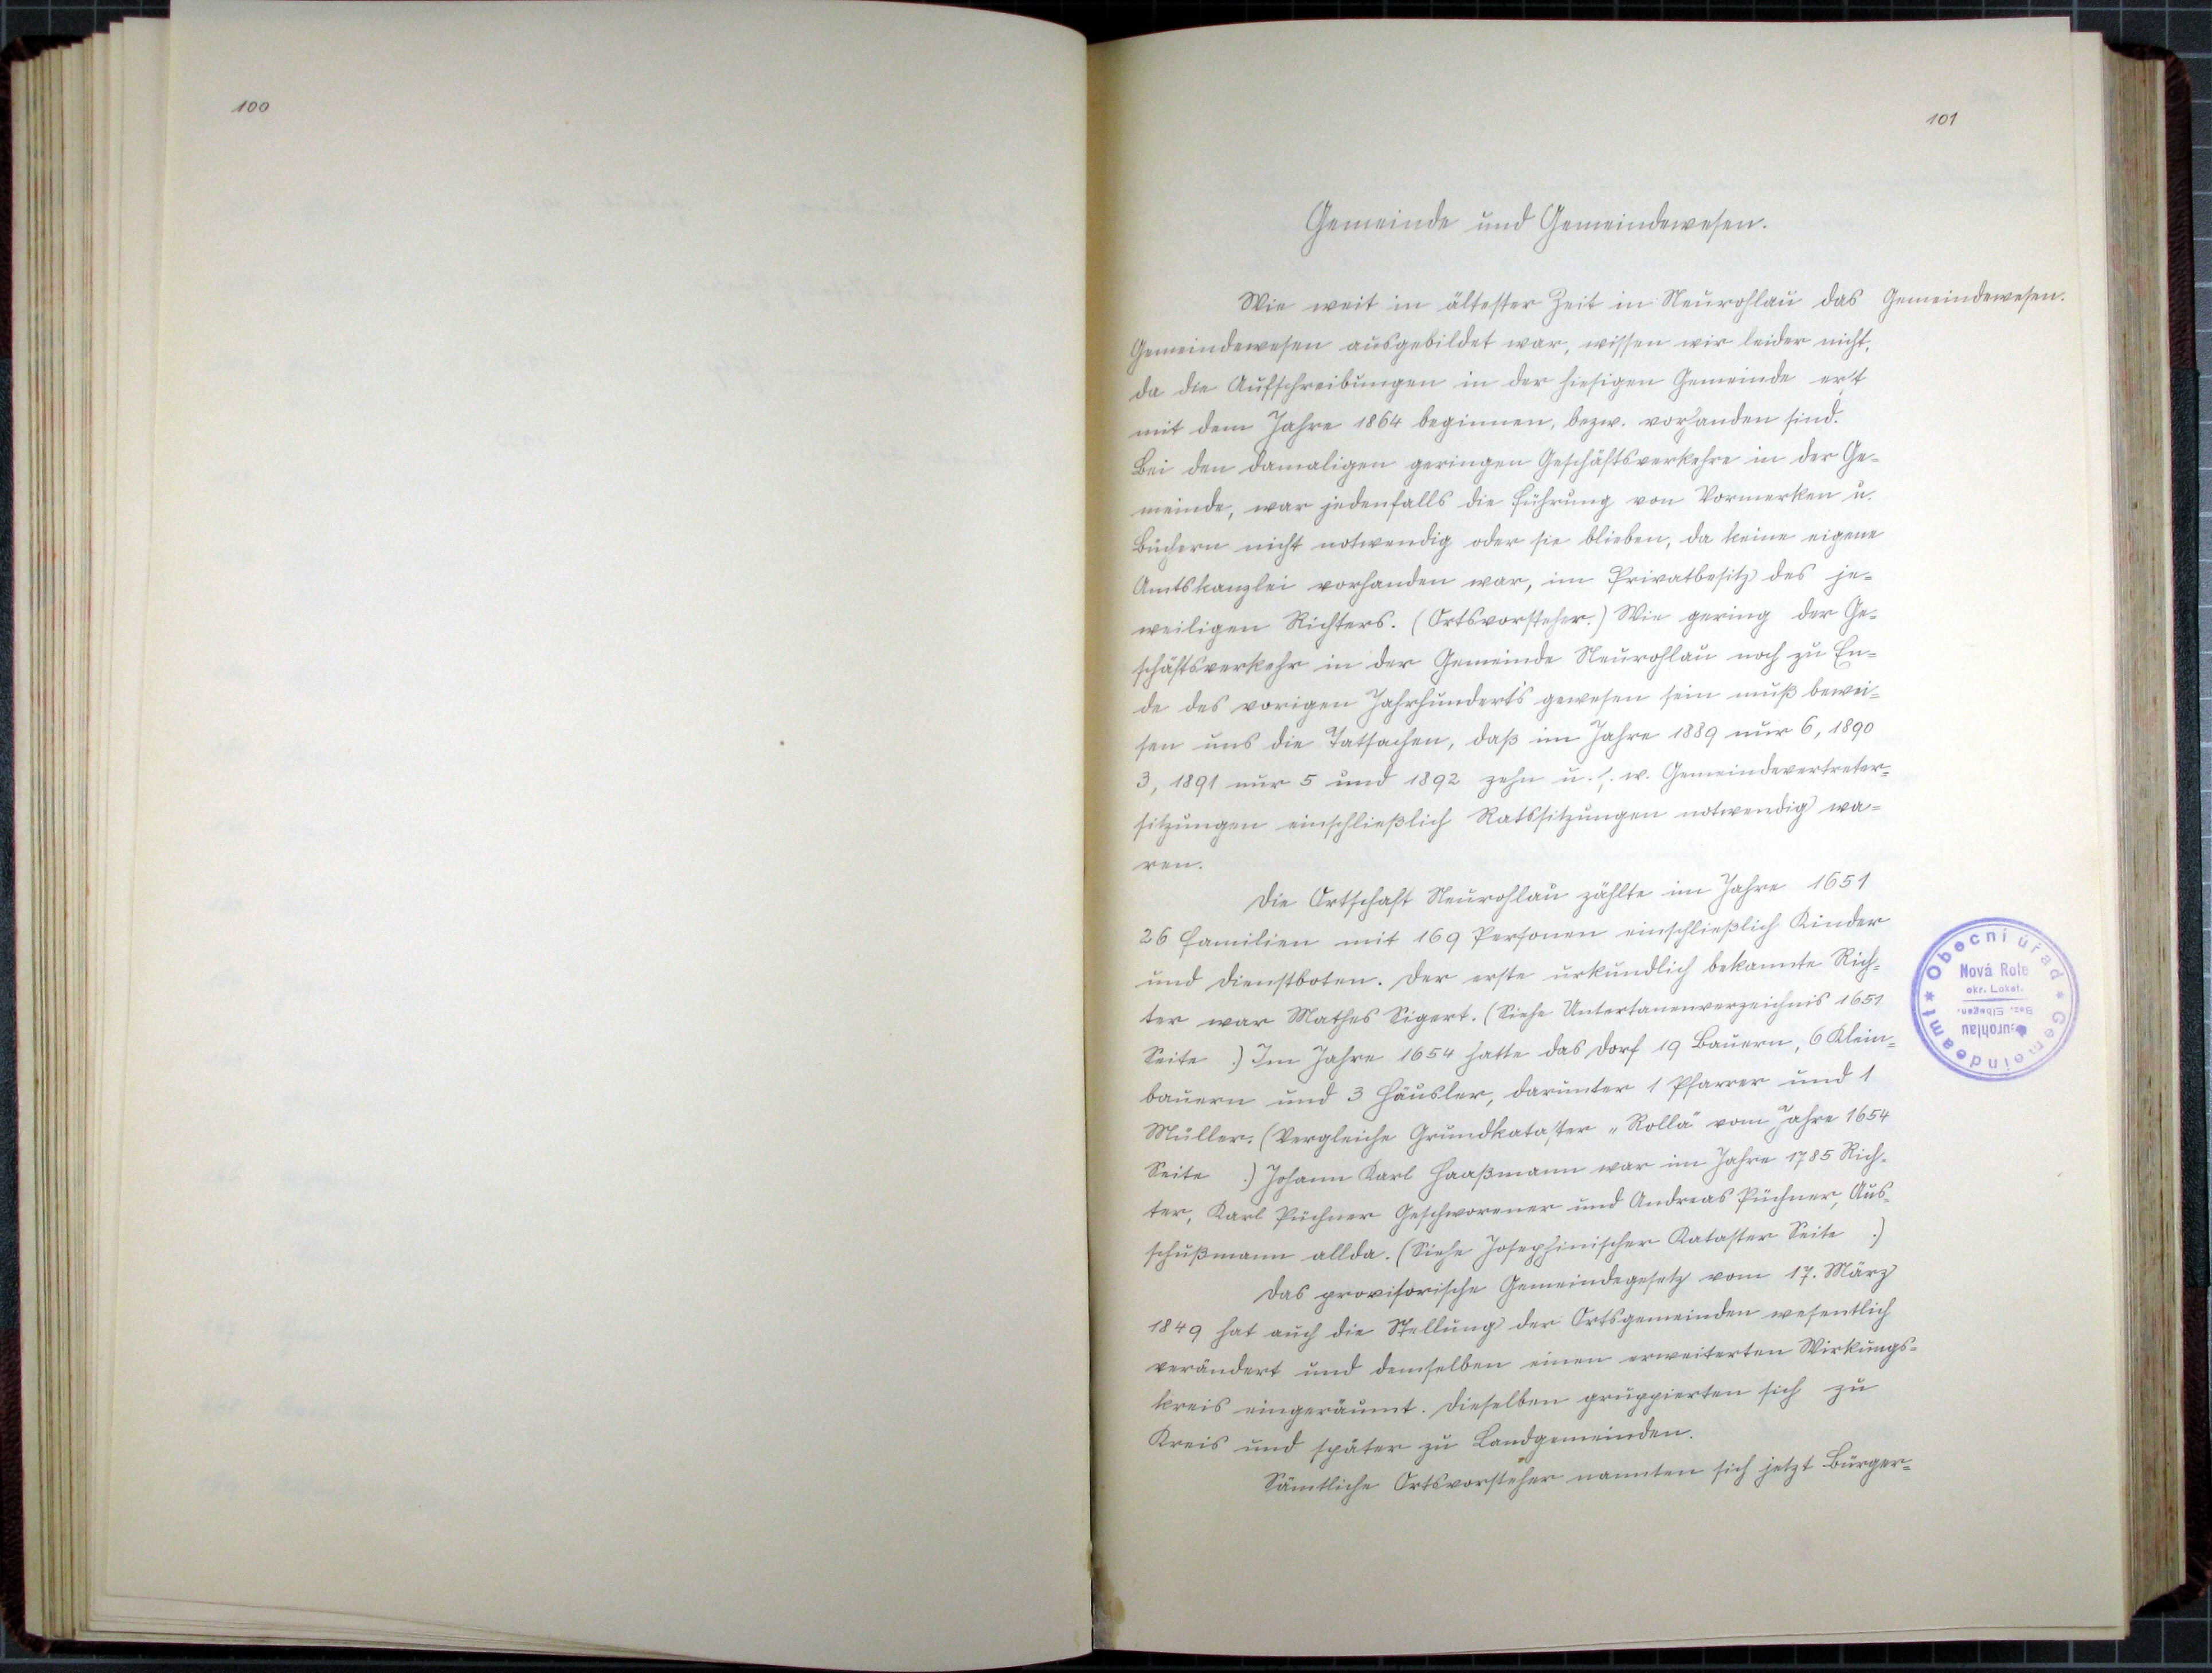 100
101
Gemeinde und Gemeindewesen.
Wie weit in ältester Zeit in Neurohlau das Gemeindewesen.
Gemeindewesen ausgebildet war, wissen wir leider nicht,
da die Aufschreibungen in der hiesigen Gemeinde erst
mit dem Jahre 1864 beginnen, bezw. vorhanden sind.
Bei den damaligen geringen Geschäftsverkehre in der Ge=
meinde, war jedenfalls die Führung von Vormerken u.
Büchern nicht notwendig oder sie blieben, da keine eigene
Amtskanzlei vorhanden war, im Privatbesitz des je=
weiligen Richters. (Ortsvorsteher.) Wie gering der Ge=
schäftsverkehr in der Gemeinde Neurohlau noch zu En=
de des vorigen Jahrhundert's gewesen sein muß bewei=
sen uns die Tatsachen, daß im Jahre 1889 nur 6, 1890
3, 1891 nur 5 und 1892 zehn u. s. w. Gemeindevertreter=
sitzungen einschließlich Ratssitzungen notwendig wa=
ren.
Die Ortschaft Neurohlau zählte im Jahre 1651
26 Familien mit 169 Personen einschließlich Kinder
und Dienstboten. Der erste urkundlich bekannte Rich=
ter war Mathes Sigert. (Siehe Untertanenverzeichnis 1651
Seite .) Im Jahre 1654 hatte das Dorf 19 Bauern, 6 Klein=
bauern und 3 Häusler, darunter 1 Pfarrer und 1
Müller. (Vergleiche Grundkataster „Rolla" vom Jahre 1654
Seite .) Johann Karl Haaßmann war im Jahre 1785 Rich=
ter, Karl Püchner Geschworener und Andreas Püchner, Aus=
schußmann allda. (Siehe Josephinischer Kataster Seite .)
Das provisorische Gemeindegesetz vom 17. März
1849 hat auch die Stellung der Ortsgemeinden wesentlich
verändert und demselben einen erweiterten Wirkungs=
kreis eingeräumt. Dieselben gruppierten sich zu
Kreis und später zu Landgemeinden.
Sämtliche Ortsvorsteher nannten sich jetzt Bürger=
Obecní úřad * Gemeindeamt *
Nová Role
okr. Loket.
Bez. Elbogen.
Neurohlau